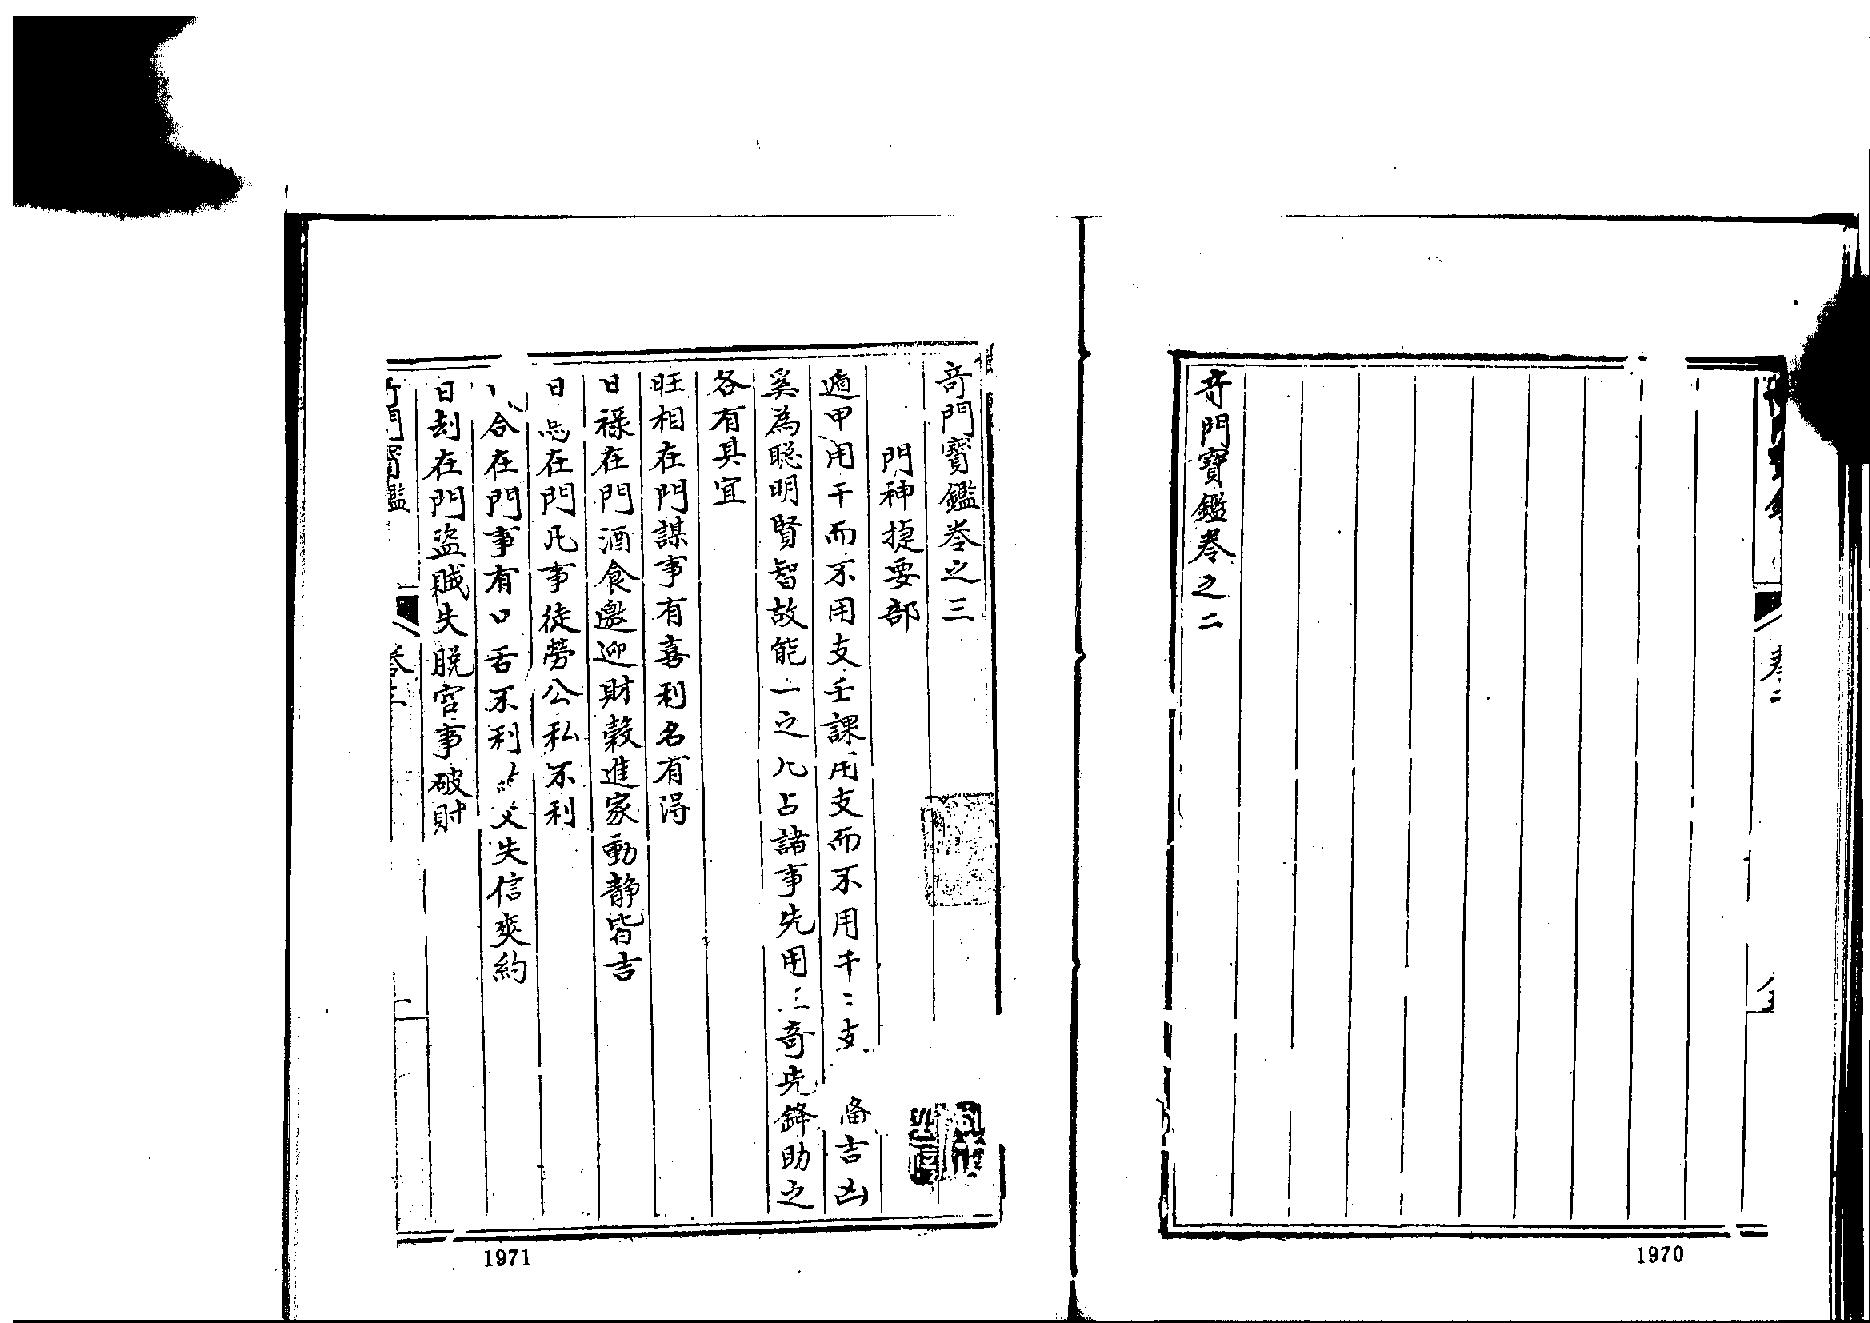 奇門寶鑑卷之二
卷二
1970
奇門寶鑑卷之三
門神捷要部
遁甲用干而不用支壬課用支而不用干二支 備吉凶
奚為聰明賢智故能一之凡占諸事先用三奇先鋒助之
各有其宜
旺相在門謀事有喜利名有得
日祿在門酒食邀迎財穀進家動靜皆吉
日 在門凡事徒勞公私不利
合在門事有口舌不利 失信爽約
日刦在門盜賊失脫官事破財
奇門寶鑑
卷三
一
1971